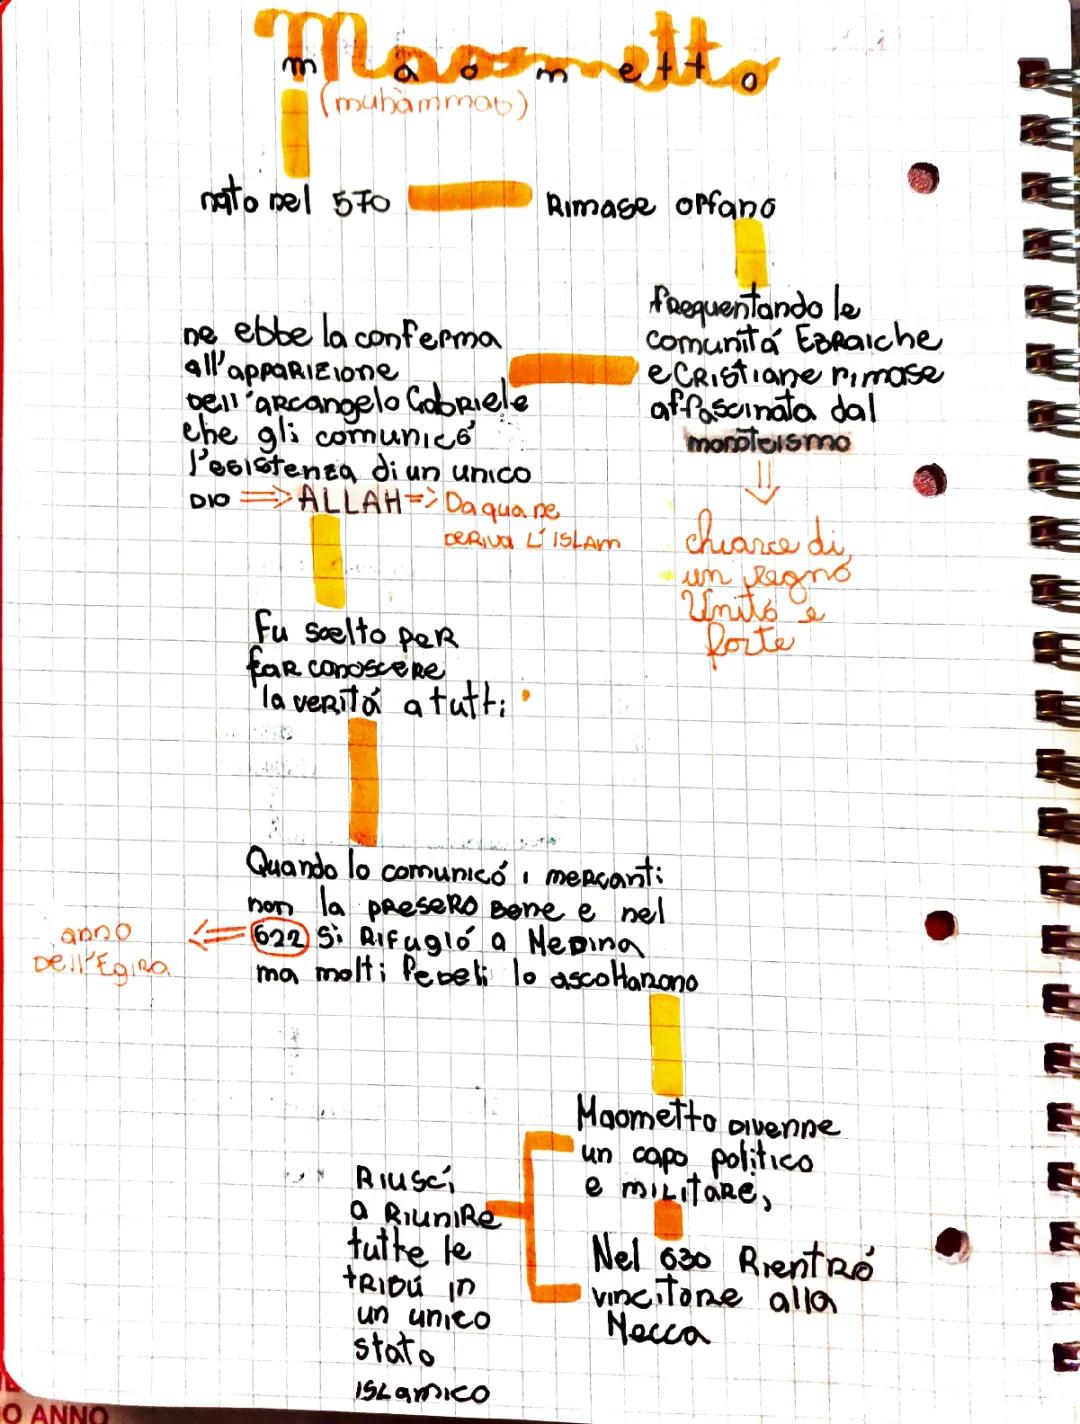 Maometto
m a o m e t t o
(muhàmmad)
nato nel 570
Rimase orfano
frequentando le
comunitá Ebraiche
e Cristiane rimase
affascinata dal
monoteismo
chiarce di
un regno
Unito e
forte
ne ebbe la conferma
all'apparizione
dell'arcangelo Gabriele
che gli comunicó
l'esistenza di un unico
DIO => ALLAH => Da qua ne
deriva l'Islam
Fu scelto per
far conoscere
la veritá a tutti
Quando lo comunicó i mercanti
non la presero bene e nel
622 si rifugió a Medina
ma molti fedeli lo ascoltarono
anno
dell'Egira
Maometto divenne
un capo politico
e militare,
Nel 630 Rientró
vincitore alla
Mecca
Riuscí
a Riunire
tutte le
tribú in
un unico
stato
islamico
O ANNO